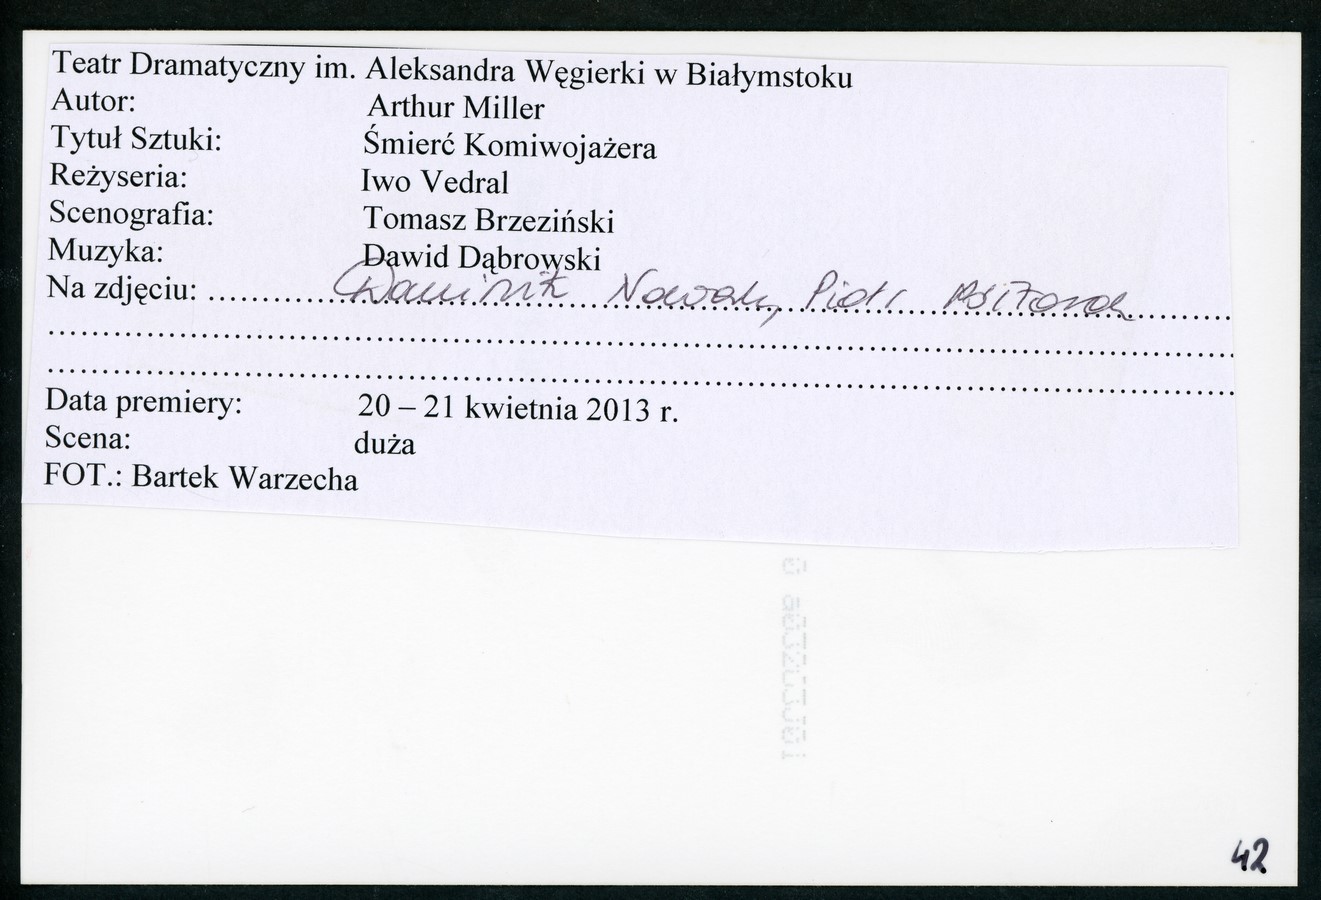 Teatr Dramatyczny im. Aleksandra Węgierki w Białymstoku
Autor: Arthur Miller
Tytuł Sztuki: Śmierć Komiwojażera
Reżyseria: Iwo Vedral
Scenografia: Tomasz Brzeziński
Muzyka: Dawid Dąbrowski
Na zdjęciu: Dominik Nowak, Piotr
Data premiery: 20 – 21 kwietnia 2013 r.
Scena: duża
FOT.: Bartek Warzecha
42